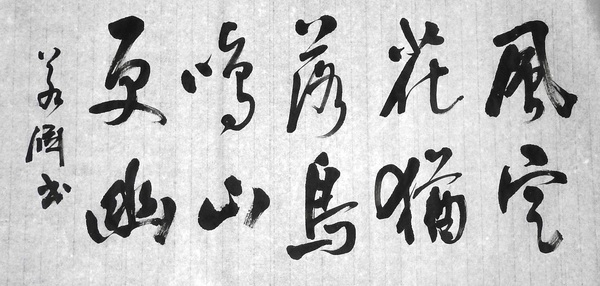 風定
花猶
落鳥
鳴山
更幽
书